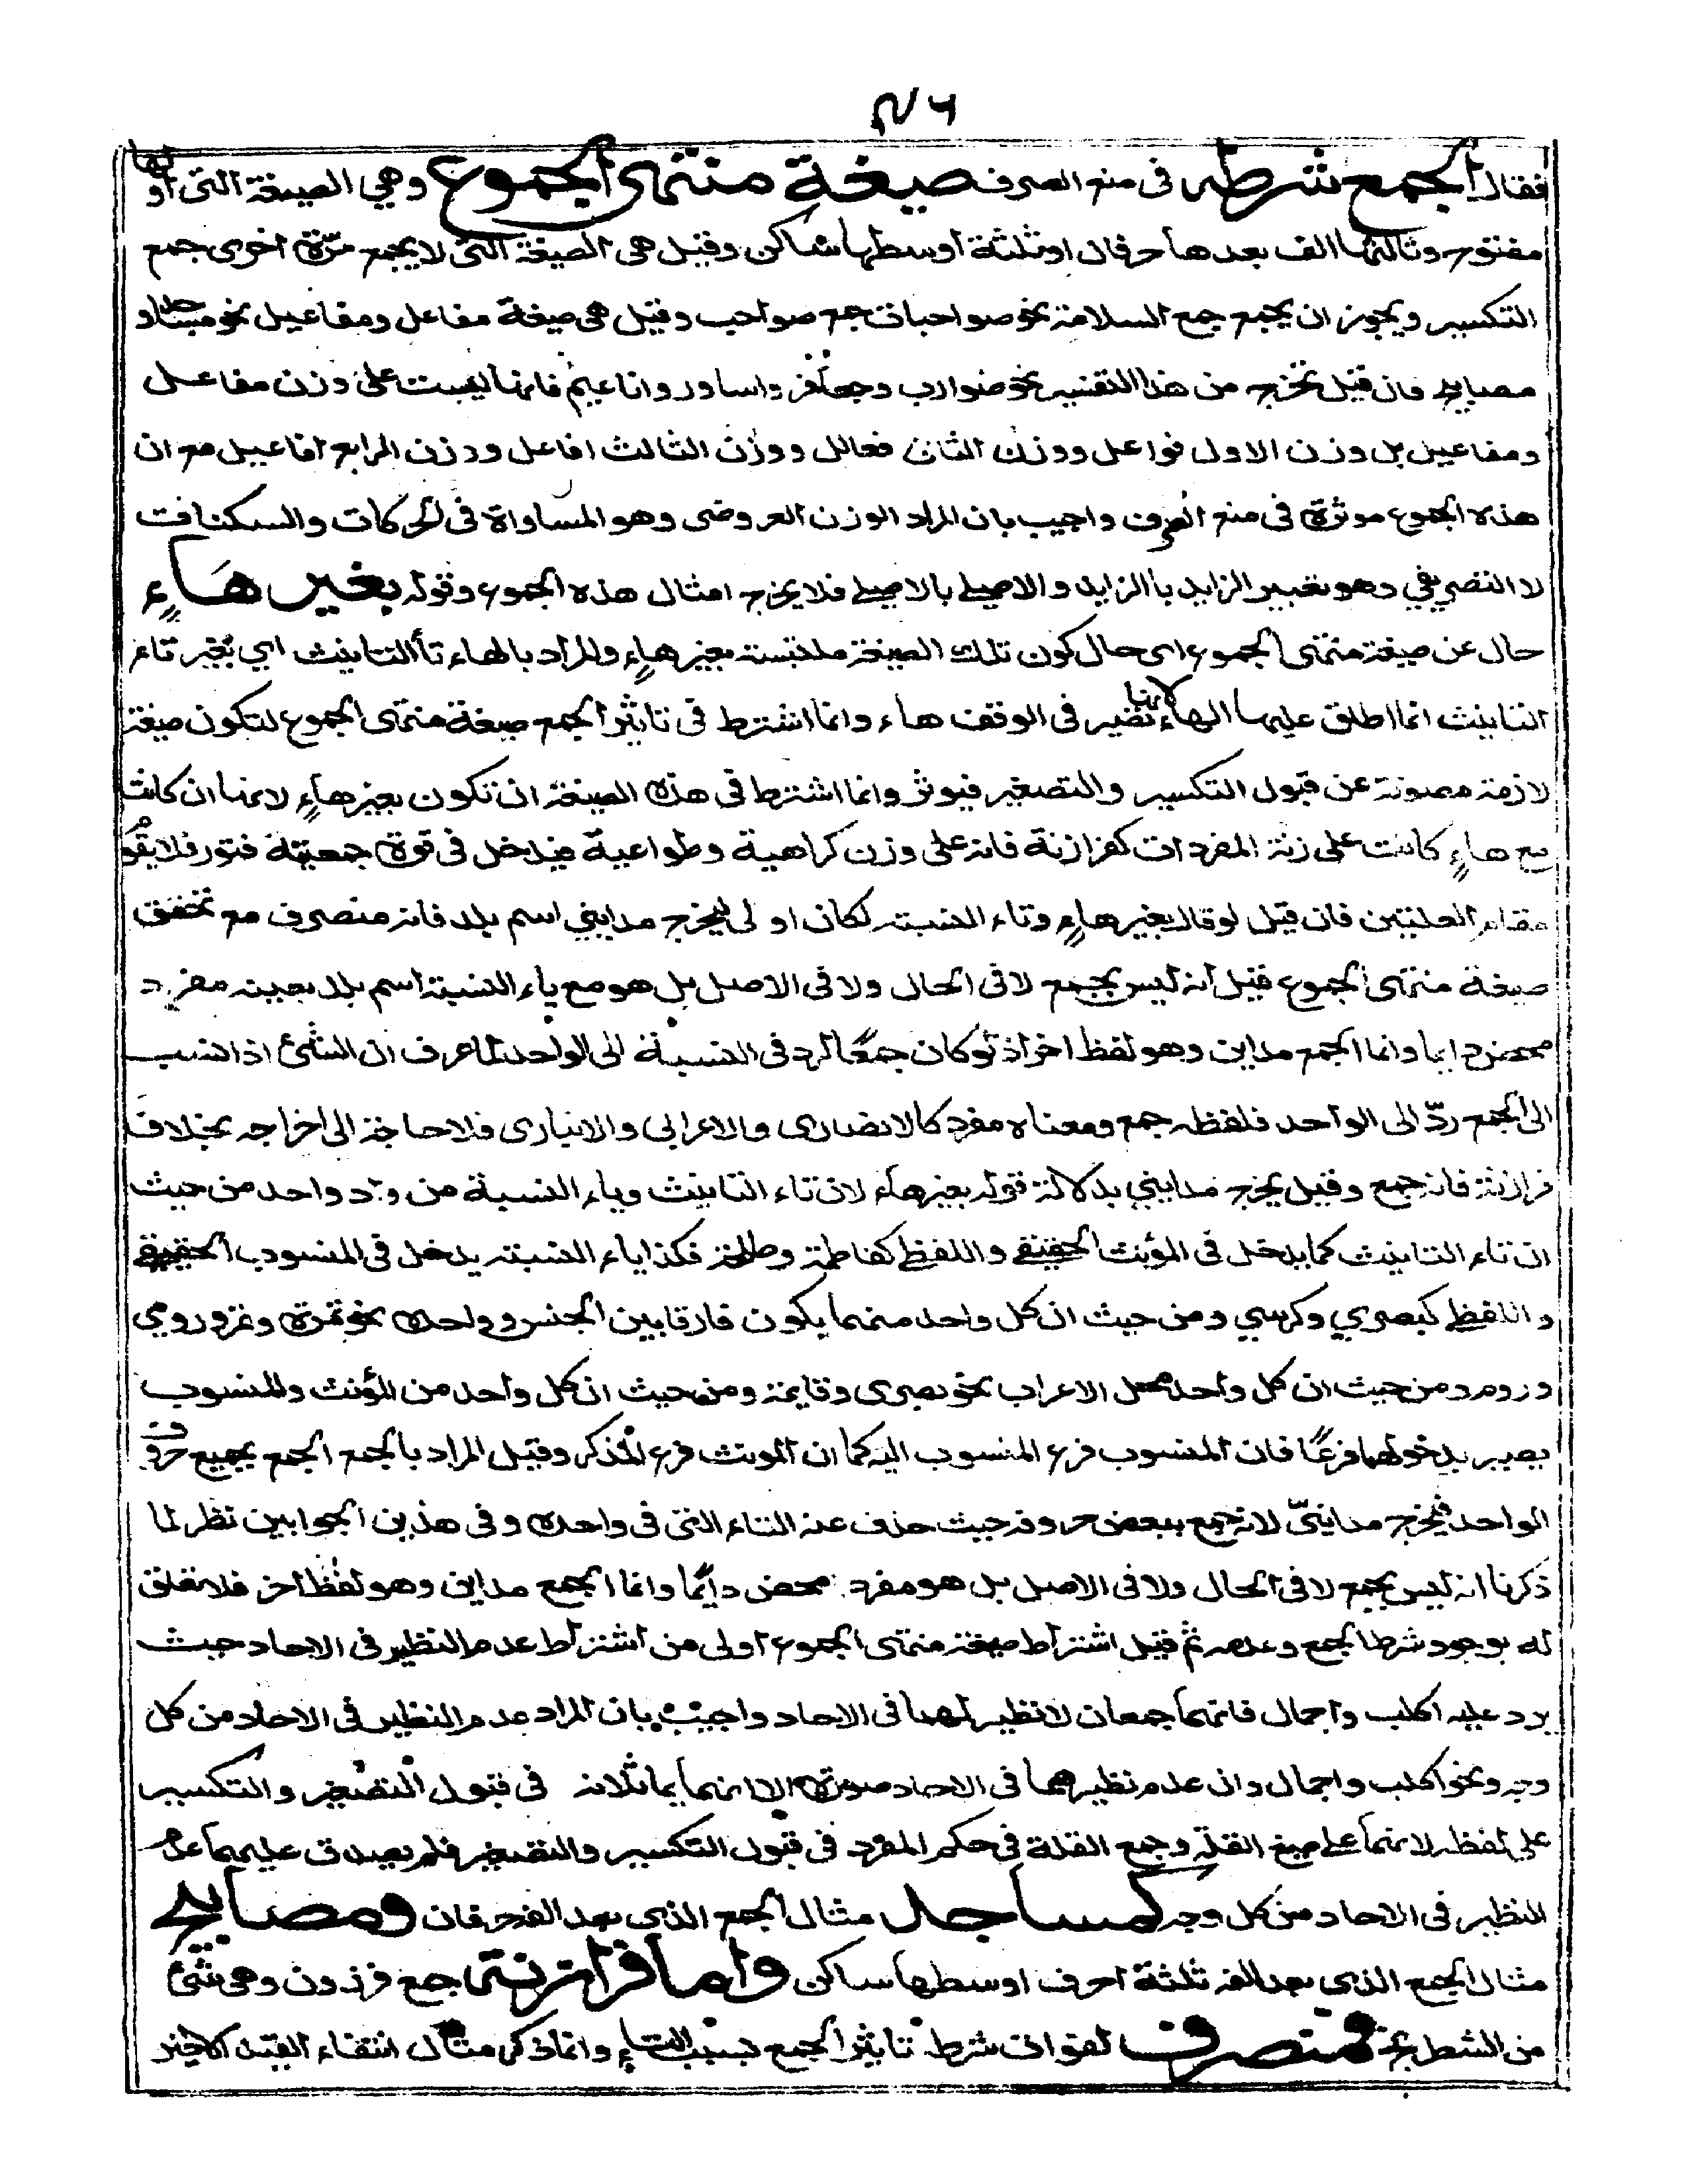 فقال الجمع شرطه فى منع الصرف صيغة منتهى الجموع وهي الصيغة التى اولها
مفتوح وثالثها الف بعدها حرفان او ثلثة اوسطها ساكن وقيل هى الصيغة التى لا يجمع مرّة اخرى جمع
التكسير ويجوز ان يجمع جمع السلامة نحو صواحبات جمع صواحب وقيل هى صيغة مفاعل ومفاعيل نحو مساجد و
مصابيح فان قيل تخرج من هذا التفسير نحو ضوارب وجعافر واساور واناعيم فانها ليست على وزن مفاعل
ومفاعيل بل وزن الاول فواعل ووزن الثانى فعالل ووزن الثالث افاعل ووزن الرابع افاعيل مع ان
هذه الجموع موثرة فى منع الصرف واجيب بان المراد الوزن العروضى وهو المساواة فى الحركات والسكنات
لا التصريفي وهو تعبير الزايد بالزايد والاصلي بالاصلي فلا يخرج امثال هذه الجموع وقوله بغير هاءٍ
حال عن صيغة منتهى الجموع اى حال كون تلك الصيغة ملتبسة بغير هاءٍ والمراد بالهاء تاء التانيث اي بغير تاء
التانيث انما اطلق عليها الهاء لانها تصير فى الوقف هاء وانما اشترط فى تاثير الجمع صيغة منتهى الجموع لتكون صيغة
لازمة مصونة عن قبول التكسير والتصغير فيوثر وانما اشترط فى هذه الصيغة ان تكون بغير هاءٍ لانها ان كانت
مع هاءٍ كانت على زنة المفردات كفرازنة فانه على وزن كراهية وطواعية فيدخل فى قوة جمعيته فتور فلا يقوم
مقام العلتين فان قيل لو قال بغير هاءٍ وتاء النسبة لكان اولى ليخرج مدايني اسم بلد فانه منصرف مع تحقق
صيغة منتهى الجموع قيل انه ليس بجمع لا فى الحال ولا فى الاصل بل هو مع ياء النسبة اسم بلد بعينه مفرد
محض دايما وانما الجمع مداين وهو لفظ اخر اذ لو كان جمعًا لرد فى النسبة الى الواحد لما عرف ان الشئ اذا نسب
الى الجمع ردّ الى الواحد فلفظه جمع ومعناه مفرد كالانصارى والاعرابي والانبارى فلا حاجة الى اخراجه بخلاف
فرازنة فانه جمع وقيل يخرج مدايني بدلالة قوله بغير هاء لان تاء التانيث وياء النسبة من واد واحد من حيث
ان تاء التانيث كما يدخل فى المؤنث الحقيقي واللفظي كفاطمة وطلحة فكذا ياء النسبة يدخل فى المنسوب الحقيقي
واللفظي كبصري وكرسي ومن حيث ان كل واحد منهما يكون فارقا بين الجنس وواحده نحو تمرة وتمر ورومي
وروم ومن حيث ان كل واحد محل الاعراب نحو بصرى وقايمة ومن حيث ان كل واحد من المؤنث والمنسوب
يصير بدخولهما فرعًا فان المنسوب فرع المنسوب اليه كما ان المونث فرع المذكر وقيل المراد بالجمع الجمع بجميع حروف
الواحد فيخرج مداينىّ لانه جمع ببعض حروفه حيث حذف عنه التاء التى فى واحده وفى هذين الجوابين نظر لما
ذكرنا انه ليس بجمع لا فى الحال ولا فى الاصل بل هو مفرد محض دايمًا وانما الجمع مداين وهو لفظ اخر فلا تعلق
له بوجود شرط الجمع وعدمه ثم قيل اشتراط صيغة منتهى الجموع اولى من اشتراط عدم النظير فى الاحاد حيث
يرد عليه اكلب واجمال فانهما جمعان لا نظير لهما فى الاحاد واجيب بان المراد عدم النظير فى الاحاد من كل
وجه ونحو اكلب واجمال وان عدم نظيرهما فى الاحاد صورة الا انهما يماثلانه فى قبول التصغير والتكسير
على لفظه لانهما على صيغ القلة وجمع القلة فى حكم المفرد فى قبول التكسير والتصغير فلم يصدق عليهما عدم
النظير فى الاحاد من كل وجه كمساجد مثال الجمع الذى بعد الفه حرفان ومصابيح
مثال الجمع الذى بعد الفه ثلثة احرف اوسطها ساكن واما فرازنة جمع فرزدون وهى شئ
من الشطرنج فمنصرف لفوات شرط تاثير الجمع بسبب التاءِ وانما ذكر مثال انتفاء القيد الاخير